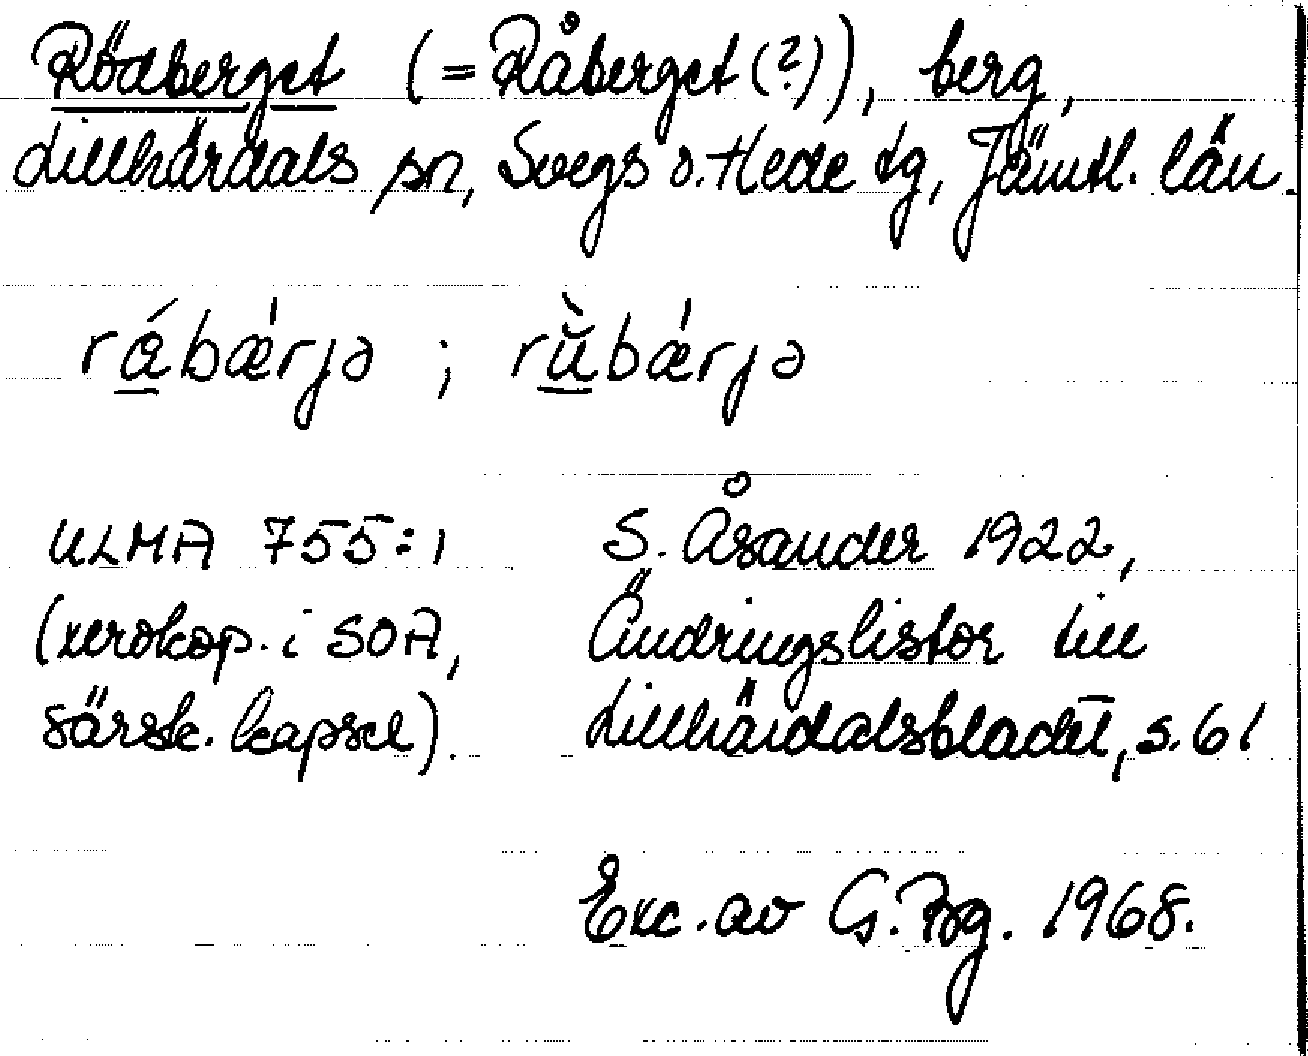 Rödberget (= Råberget (?)), berg,
Lillhärdals sn, Svegs o. Hede tg, Jämtl. län.
rá̱bǽrjə ; rù̱bǽrjə
ULMA 755:1 S. Åsander 1922,
(xerokop. i SOA, Ändringslistor till
särsk. kapsel). Lillhärdalsbladet, s. 61
Exc. av G. Bg. 1968.